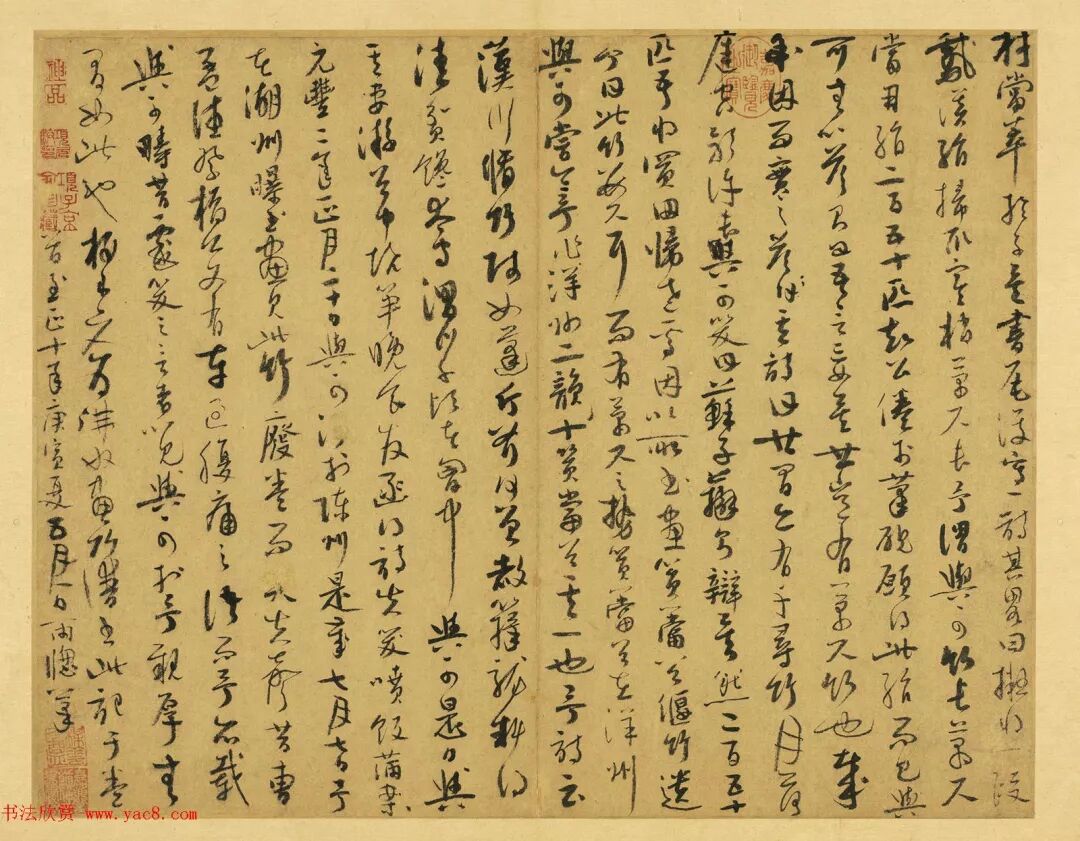 材當萃於子矣書尾復寫一詩其略曰擬將一段
鵝溪絹掃取寒梢萬尺長予謂與可竹長萬尺
當用絹二百五十匹知公倦於筆硯願得此絹而已與
可無以答則曰吾之言妄矣世豈有萬尺竹也哉
余因而實之答其詩曰世間亦有千尋竹月落
庭空影許長與可笑曰蘇子辯則辯矣然二百五十
匹吾將買田歸老焉因以所書畫篔簹谷偃竹遺
予曰此竹數尺耳而有萬尺之勢篔簹谷在洋州
與可嘗令予作洋州二韻十篔簹谷其一也予詩云
漢川脩竹賤如蓬斤斧何曾赦籜龍料得
清貧饞太守渭川千畝在胸中與可是日與
其妻游谷中燒筍晚食發函得詩失笑噴飯滿案
元豐二年正月二十日與可沒於陳州是歲七月七日予
在湖州曝書畫見此竹廢卷而哭失聲昔曹
孟德祭橋公文有車過腹痛之語而予亦載
與可疇昔戲笑之言者以見與可於予親厚無
間如此也梅道人為佛奴畫竹譜書此記于卷
首至正十年庚寅夏五月一日雨窗筆
嘉慶御覽之寶
神品
項子京家珍藏
书法欣赏 www.yac8.com